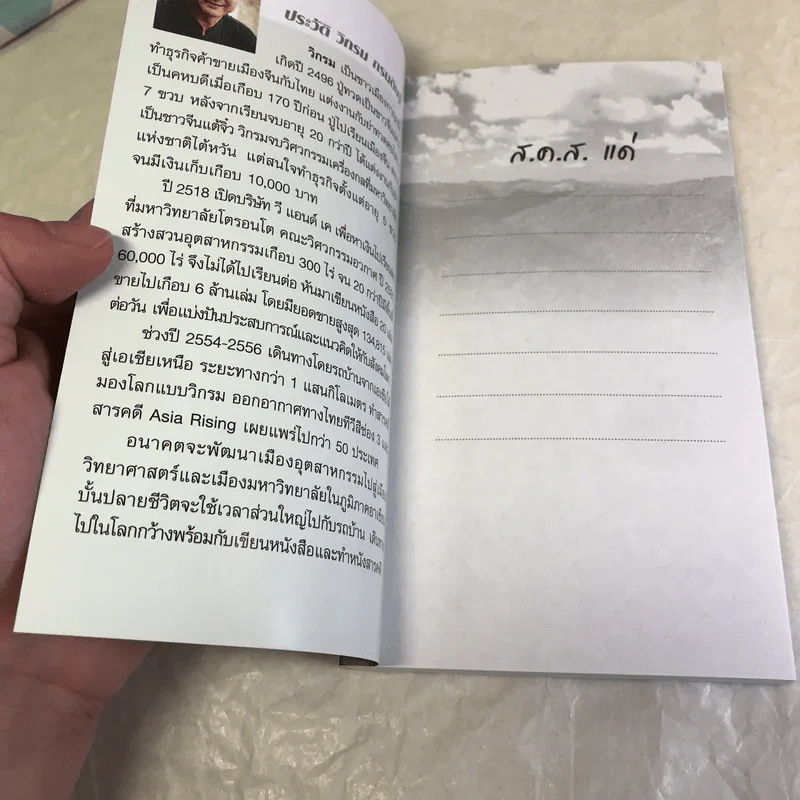 ประวัติ วิกรม กรมดิษฐ์
วิกรม เป็นชาวเมือง
เกิดปี 2496 ปู่ทวดเป็นชาวจีน
ทำธุรกิจค้าขายเมืองจีนกับไทย แต่งงานกับย่าทวด
เป็นคหบดีเมื่อเกือบ 170 ปีก่อน ปู่ไปเรียนเมืองจีน
7 ขวบ หลังจากเรียนจบอายุ 20 กว่าปี ได้แต่งงาน
เป็นชาวจีนแต้จิ๋ว วิกรมจบวิศวกรรมเครื่องกลที่มหาวิทยาลัย
แห่งชาติไต้หวัน แต่สนใจทำธุรกิจตั้งแต่อายุ 5 ขวบ
จนมีเงินเก็บเกือบ 10,000 บาท
ปี 2518 เปิดบริษัท วี แอนด์ เค เพื่อหาเงินไปเรียน
ที่มหาวิทยาลัยโตรอนโต คณะวิศวกรรมอวกาศ ปี
สร้างสวนอุตสาหกรรมเกือบ 300 ไร่ จน 20 กว่าปี
60,000 ไร่ จึงไม่ได้ไปเรียนต่อ หันมาเขียนหนังสือ 20
ขายไปเกือบ 6 ล้านเล่ม โดยมียอดขายสูงสุด 134,815
ต่อวัน เพื่อแบ่งปันประสบการณ์และแนวคิดให้กับสังคม
ช่วงปี 2554-2556 เดินทางโดยรถบ้านจาก
สู่เอเชียเหนือ ระยะทางกว่า 1 แสนกิโลเมตร ทำสารคดี
มองโลกแบบวิกรม ออกอากาศทางไทยทีวีสีช่อง 3 และ
สารคดี Asia Rising เผยแพร่ไปกว่า 50 ประเทศ
อนาคตจะพัฒนาเมืองอุตสาหกรรมไปสู่เมือง
วิทยาศาสตร์และเมืองมหาวิทยาลัยในภูมิภาคอาเซียน
บั้นปลายชีวิตจะใช้เวลาส่วนใหญ่ไปกับรถบ้าน เดินทาง
ไปในโลกกว้างพร้อมกับเขียนหนังสือและทำหนังสารคดี
ส.ค.ส. แด่